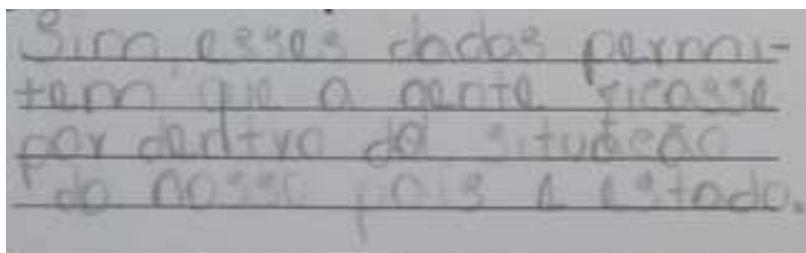 Sim esses dados permi-
tem que a gente ficasse
por dentro da situação
do nosso pais e estado.